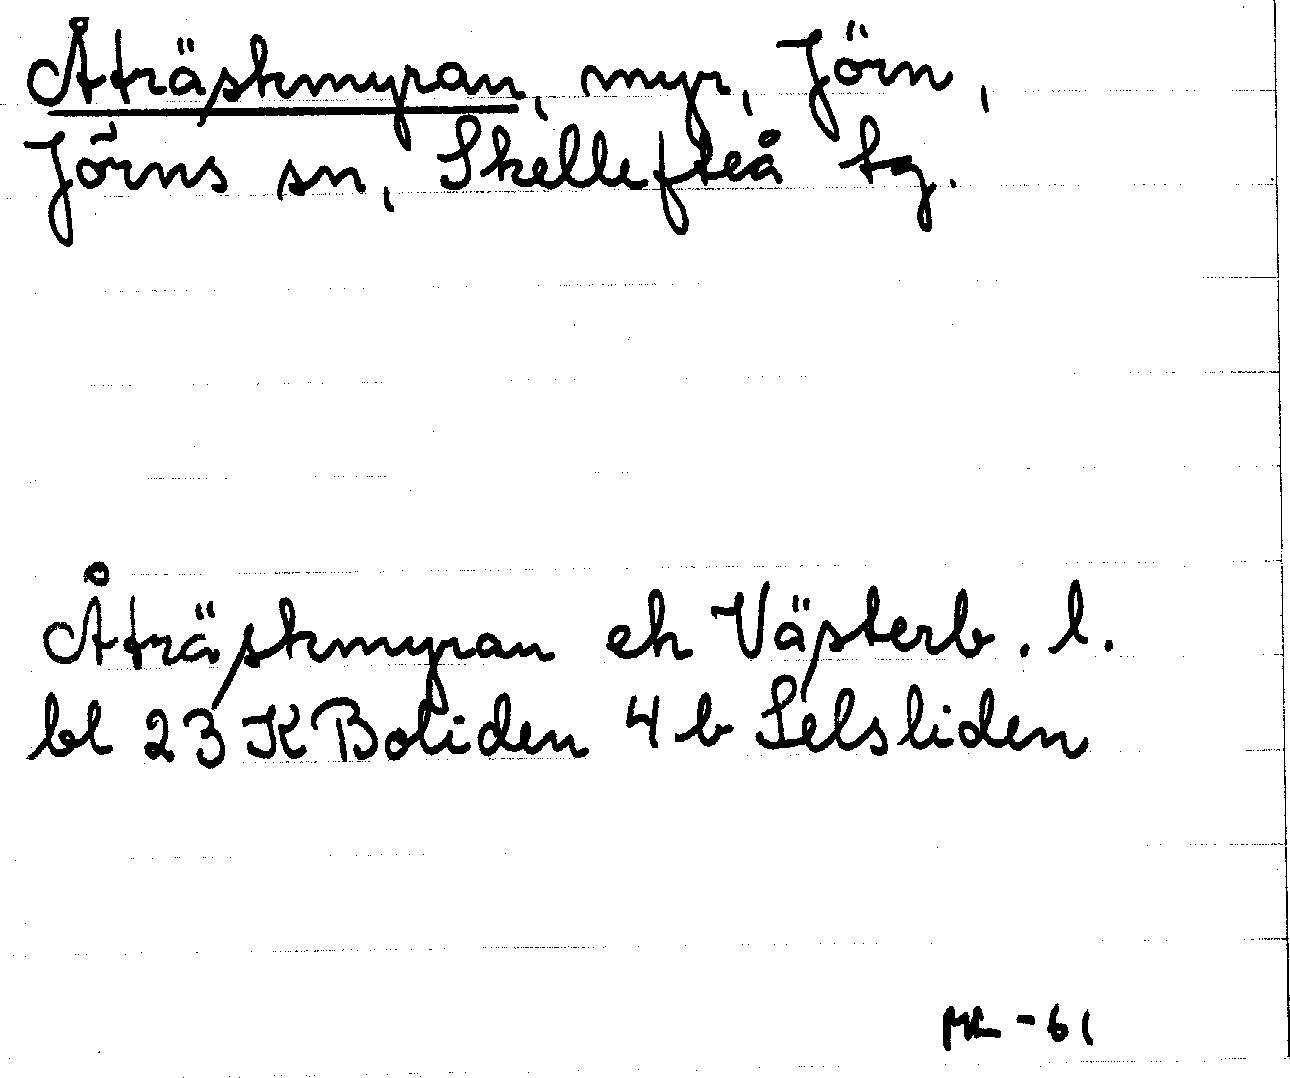 Åträskmyran, myr, Jörn,
Jörns sn, Skellefteå tg.
Åträskmyran ek Västerb. l.
bl 23 K Boliden 4 b Selsliden
ML - 61